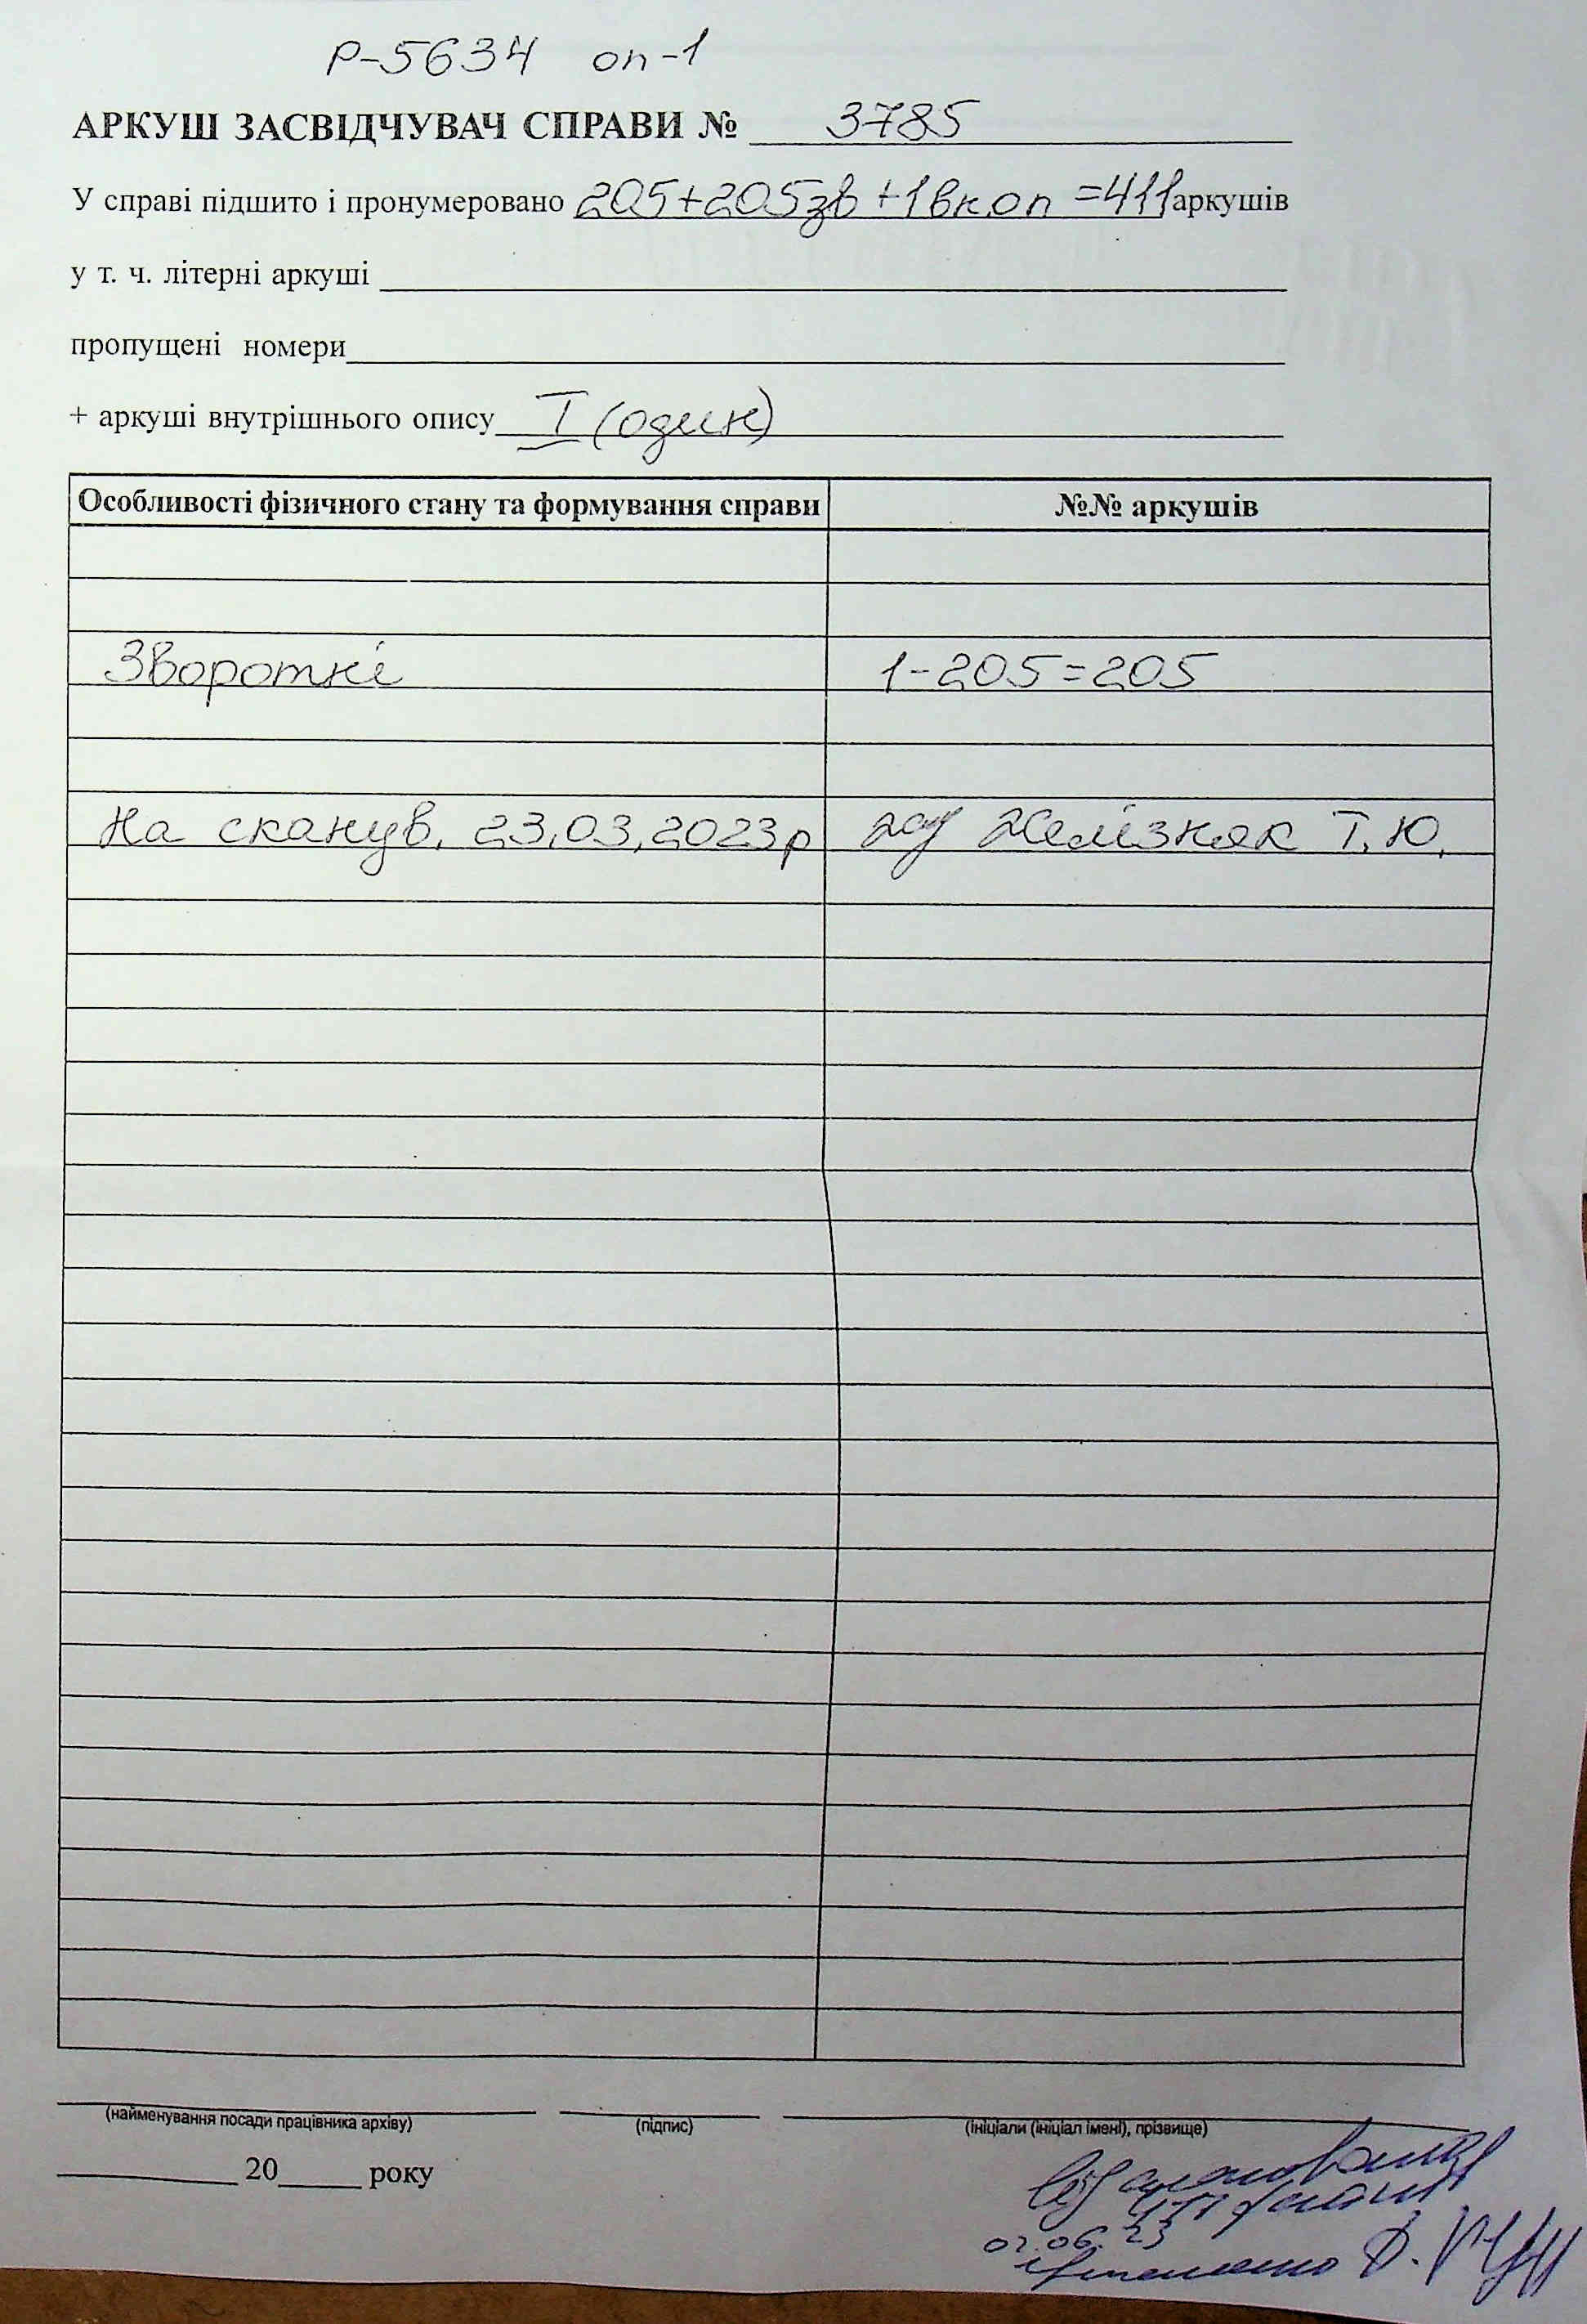 Р-5634 оп-1
АРКУШ ЗАСВІДЧУВАЧ СПРАВИ № 3785
У справі підшито і пронумеровано 205+205зв+1вк.оп =411 аркушів
у т. ч. літерні аркуші
пропущені номери
+ аркуші внутрішнього опису I (один)
Особливості фізичного стану та формування справи №№ аркушів
Зворотні 1-205=205
На сканув. 23.03.2023р Желізняк Т.Ю.
(найменування посади працівника архіву) (підпис) (ініціали (ініціал імені), прізвище)
20 року
411
.06.23